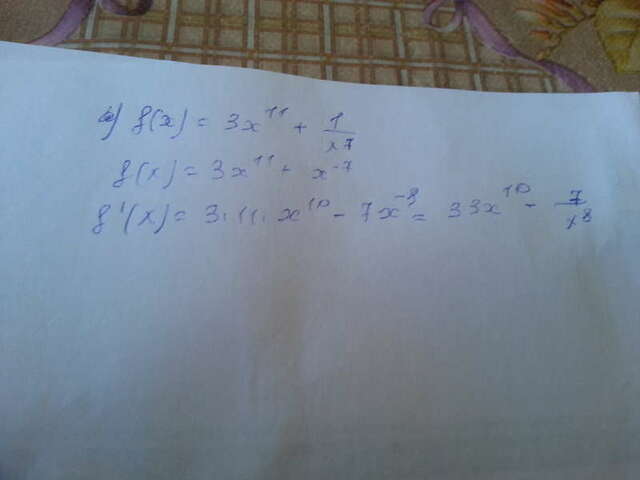 a) f(x) = 3x¹¹ + 1/x⁷
f(x) = 3x¹¹ + x⁻⁷
f'(x) = 3·11·x¹⁰ - 7x⁻⁸ = 33x¹⁰ - 7/x⁸